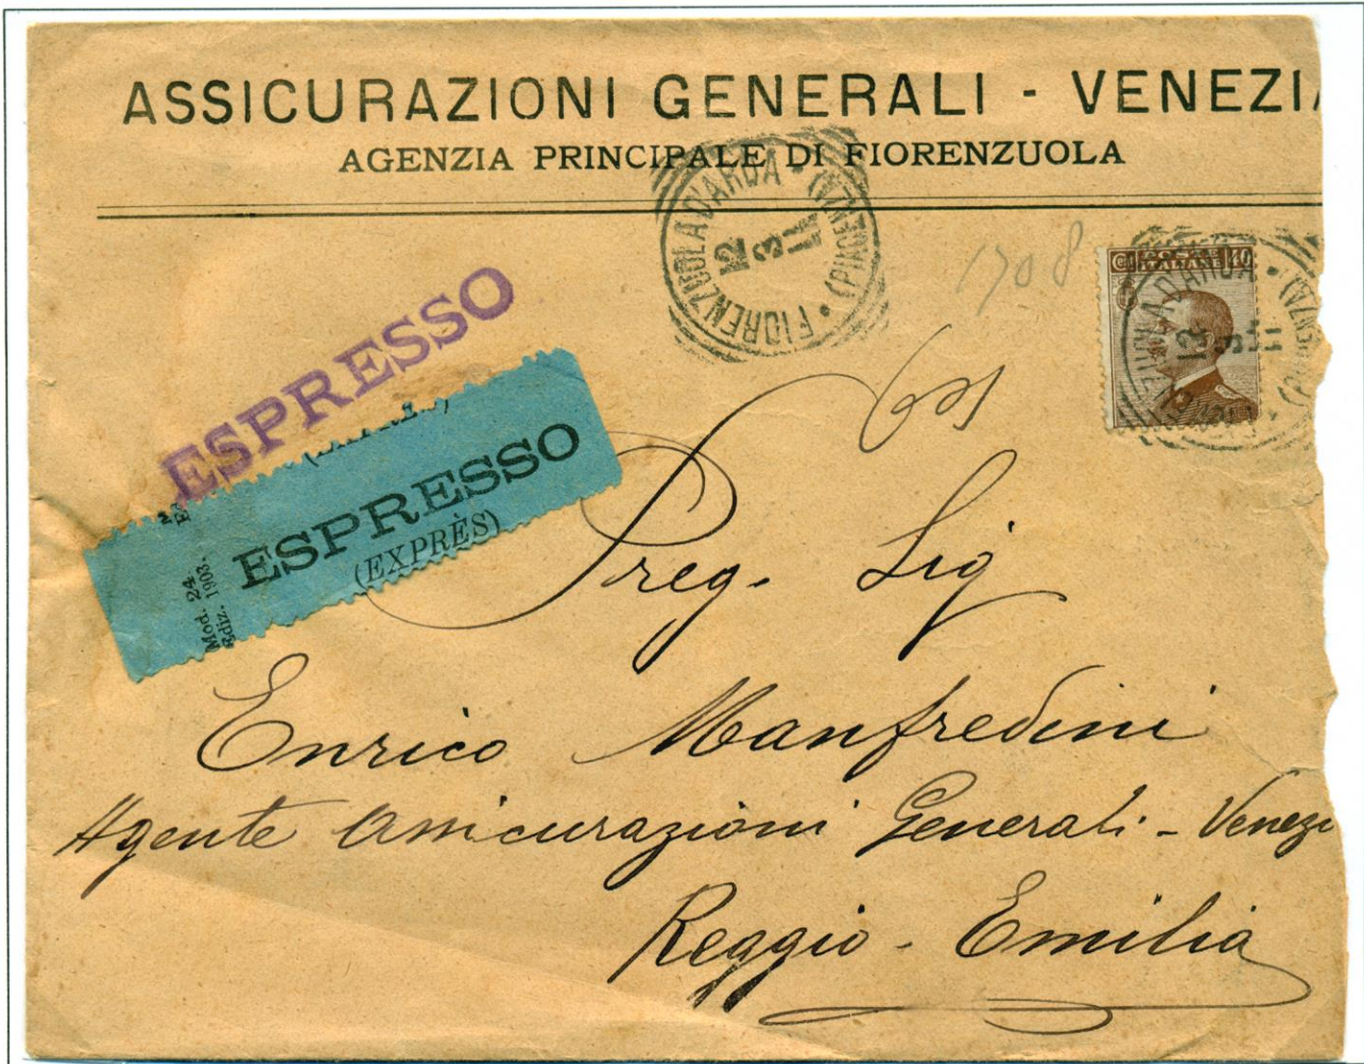 ASSICURAZIONI GENERALI - VENEZIA
AGENZIA PRINCIPALE DI FIORENZUOLA
FIORENZUOLA D'ARDA • (PIACENZA) •
12
3
11
1708
40
12
3
11
ESPRESSO
ESPRESSO
(EXPRÈS)
Mod. 24
Ediz. 1903.
Preg. Sig
Enrico Manfredini
Agente Assicurazioni Generali - Venezi
Reggio - Emilia